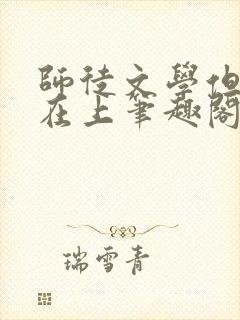 師徒文學但
在上筆趣閣
瑞雪青